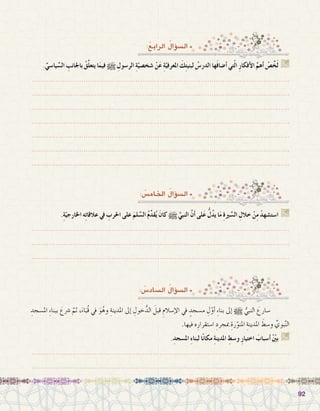 • السؤال الرابع:
لَخِّصْ أهمَّ الأفكارِ الَّتي أضافَها الدرسُ لبنيتِكَ المعرفيَّةِ عَنْ شخصيَّةِ الرسولِ ﷺ فيمَا يتعلَّقُ بالجانبِ السِّياسيِّ.
• السؤال الخامس:
استشهِدْ مِنْ خلالِ السِّيرةِ مَا يدُلُّ عَلى أنَّ النبيَّ ﷺ كانَ يُقدِّمُ السِّلمَ على الحربِ في علاقاتِهِ الخارجيَّةِ.
• السؤال السادس:
سارعَ النَّبيُّ ﷺ إلى بناءِ أوَّلِ مسجدٍ في الإسلامِ قبلَ الدُّخولِ إلى المدينةِ وَهُوَ في قُبَاءَ، ثمَّ شرعَ ببناءِ المسجدِ
النَّبويِّ وسطَ المدينةِ المُنَوَّرَةِ بمجردِ استقرارِهِ فيها.
بَيِّنْ أسبابَ اختيارِ وسطِ المدينةِ مكانًا لبناءِ المسجدِ.
92